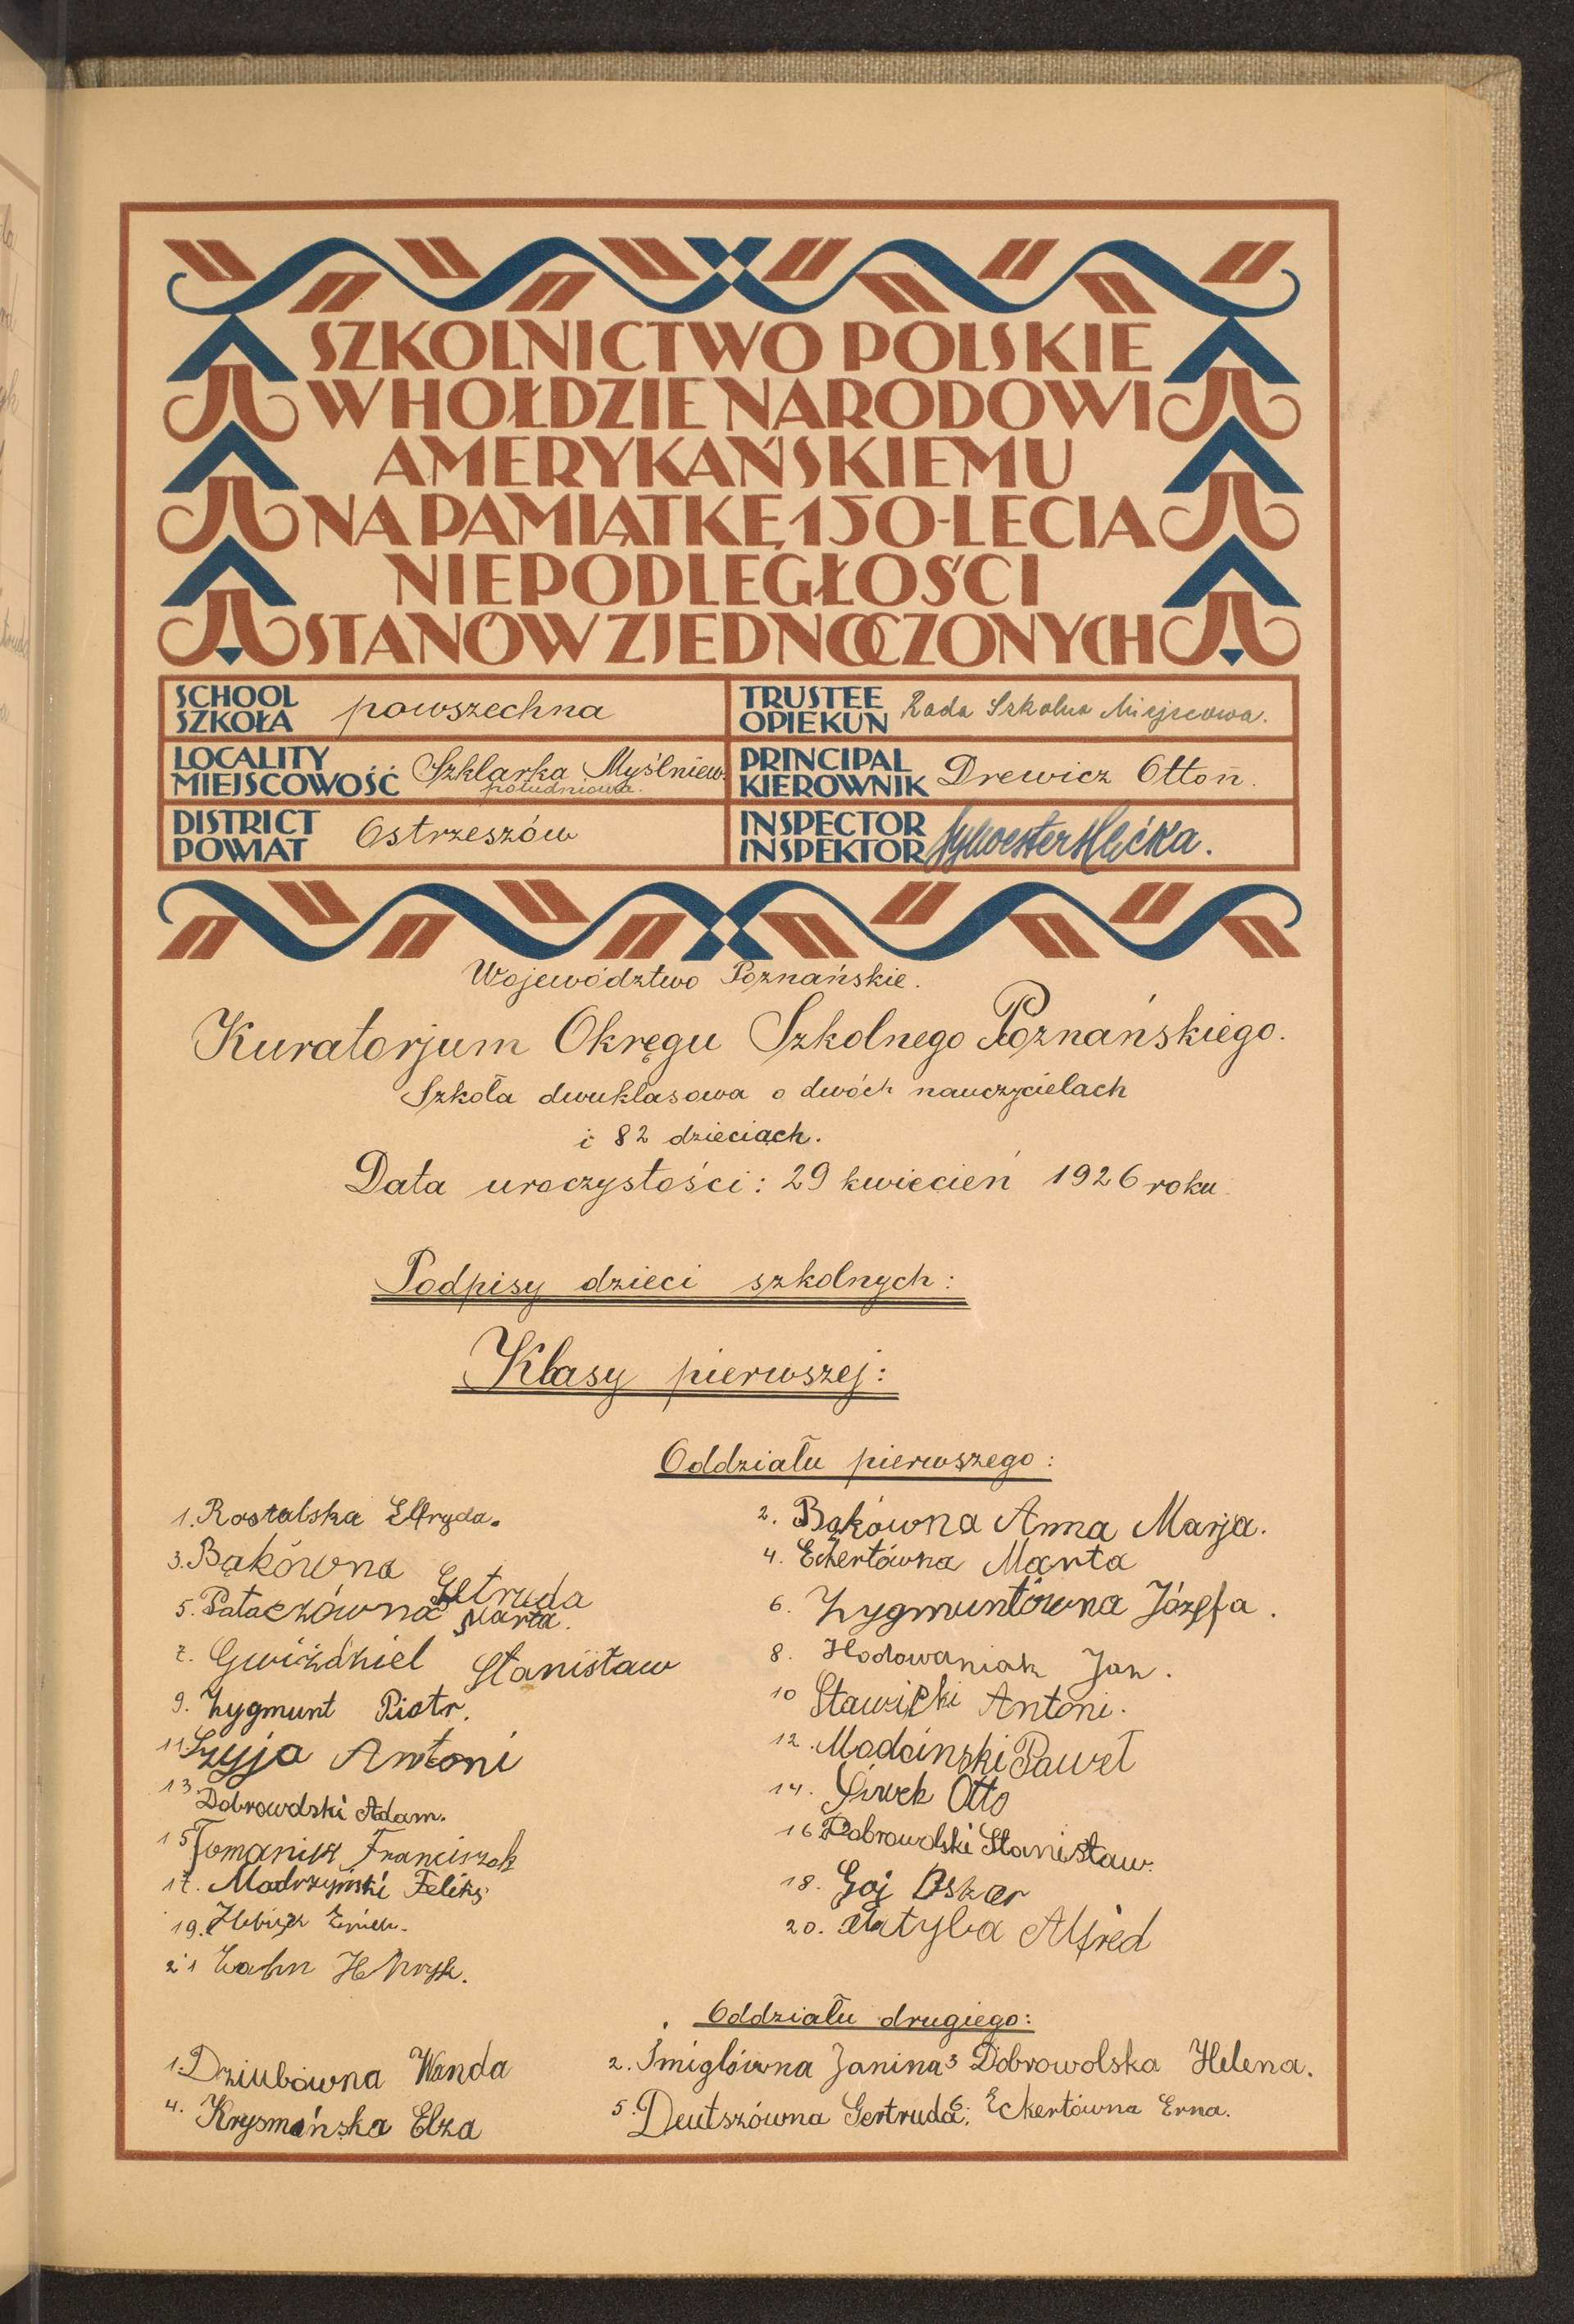 SZKOLNICTWO POLSKIE
W HOŁDZIE NARODOWI
AMERYKAŃSKIEMU
NA PAMIĄTKĘ 150-LECIA
NIEPODLEGŁOŚCI
STANÓW ZJEDNOCZONYCH
SCHOOL
SZKOŁA powszechna
TRUSTEE
OPIEKUN Rada Szkolna Miejscowa.
LOCALITY
MIEJSCOWOŚĆ Szklarka Myślniew.
południowa.
PRINCIPAL
KIEROWNIK Drewicz Otton.
DISTRICT
POWIAT Ostrzeszów
INSPECTOR
INSPEKTOR Sylwester
Województwo Poznańskie.
Kuratorjum Okręgu Szkolnego Poznańskiego.
Szkoła dwuklasowa o dwóch nauczycielach
i 82 dzieciach.
Data uroczystości: 29 kwiecień 1926 roku.
Podpisy dzieci szkolnych:
Klasy pierwszej:
Oddziału pierwszego:
1. Rostalska Elfryda. 2. Bąkówna Anna Marja.
3. Bąkówna Getruda 4. Eckertówna Marta
5. Pataczówna Marta. 6. Zygmuntówna Józefa.
7. Gwiździel Stanisław 8. Hodowaniak Jan.
9. Zygmunt Piotr. 10 Stawicki Antoni.
11. Szyja Antoni 12. Paweł
13. Dobrowolski Adam. 14. Otto
15 Tomaniak Franciszek 16 Dobrowolski Stanisław.
17. Madrzyński Feliks 18. Goj Oskar
19. 20. Alfred
21
Oddziału drugiego:
1. Dziubówna Wanda 2. Śmigłówna Janina 3 Dobrowolska Helena.
4. Krysmańska Elza 5. Deutszówna Gertruda. 6. Eckertówna Erna.